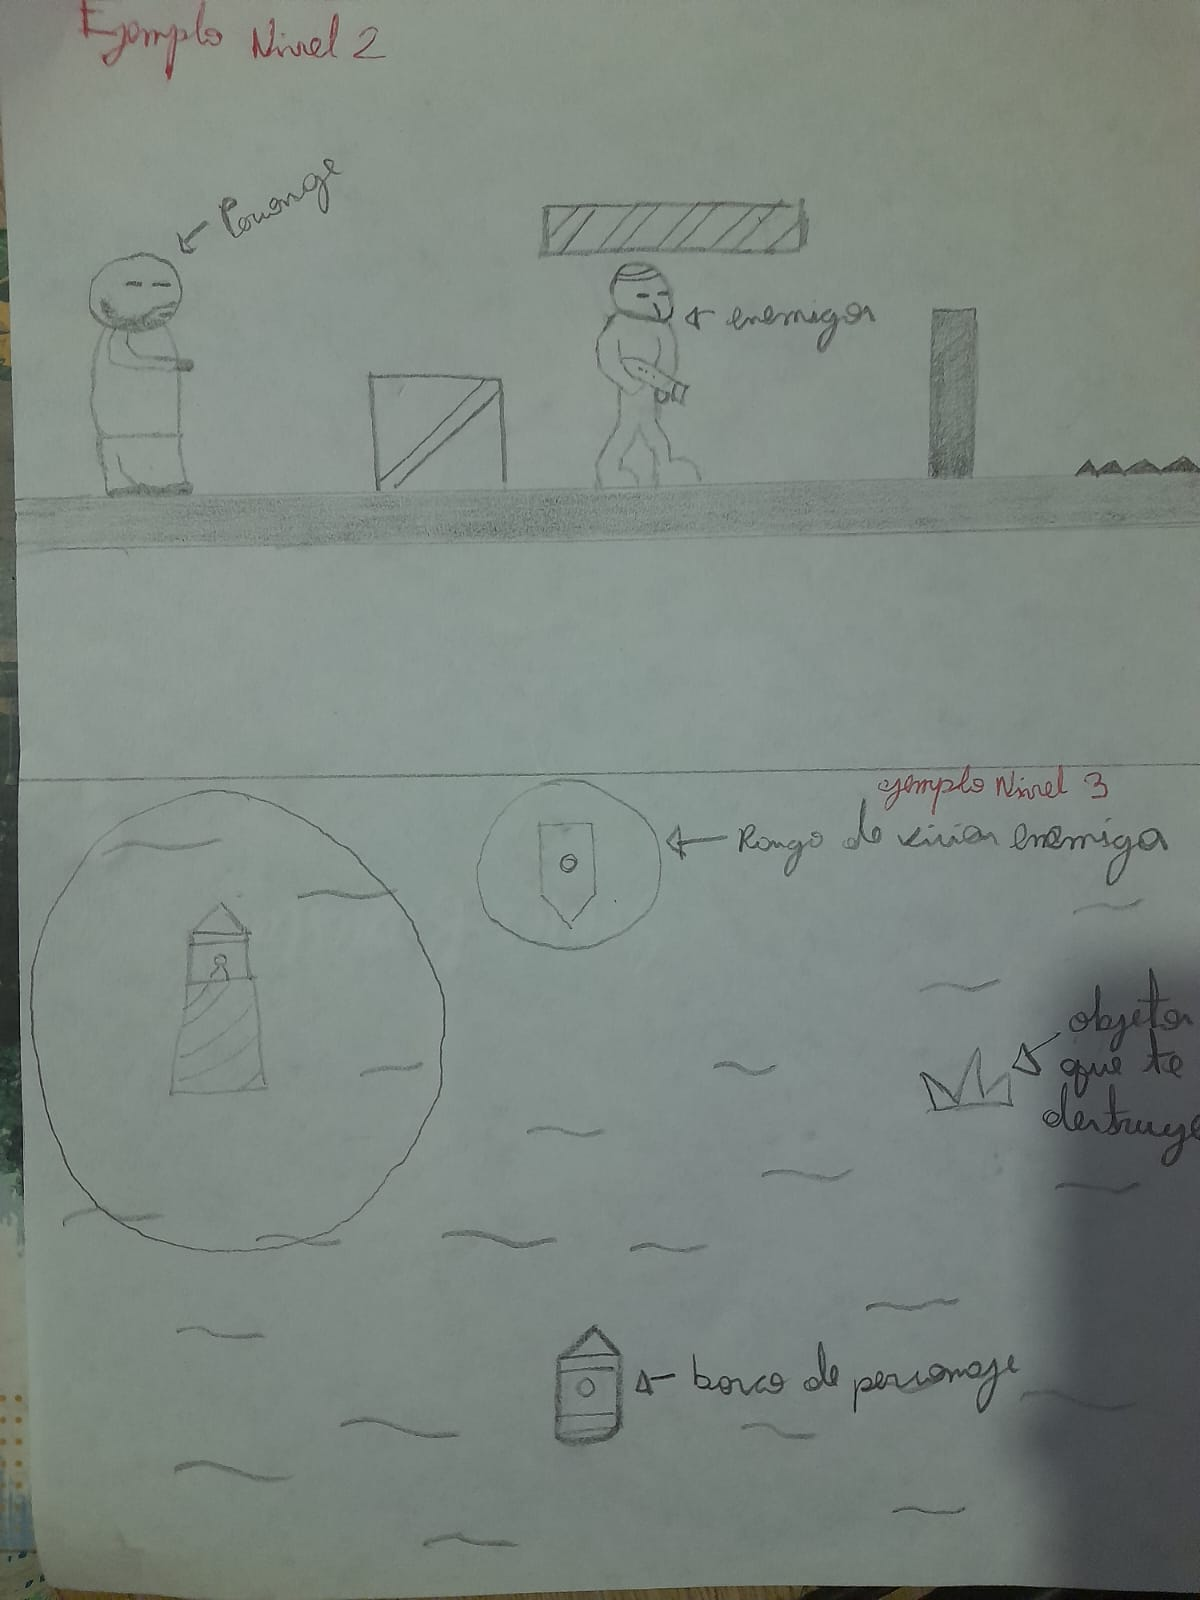 Ejemplo Nivel 2
enemigos
ejemplo Nivel 3
Rango de vision enemiga
objetos
que te
destruye
barco de personaje